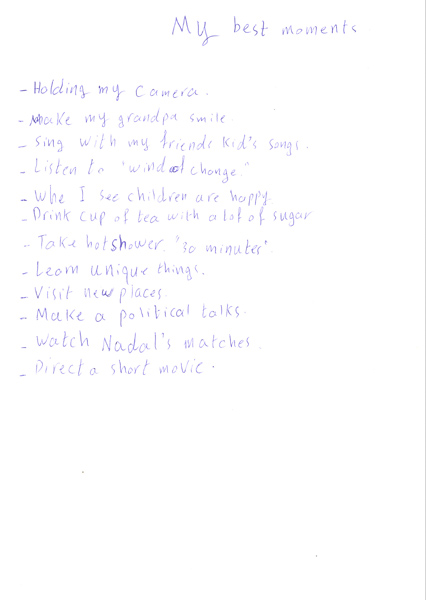 My best moments
- Holding my camera.
- Make my grandpa smile
- Sing with my friends kid's songs.
- Listen to "wind of change."
- Whe I see children are happy.
- Drink cup of tea with a lot of sugar
- Take hot shower. "30 minutes".
- Learn unique things.
- Visit new places.
- Make a political talks.
- Watch Nadal's matches.
- Direct a short movie.